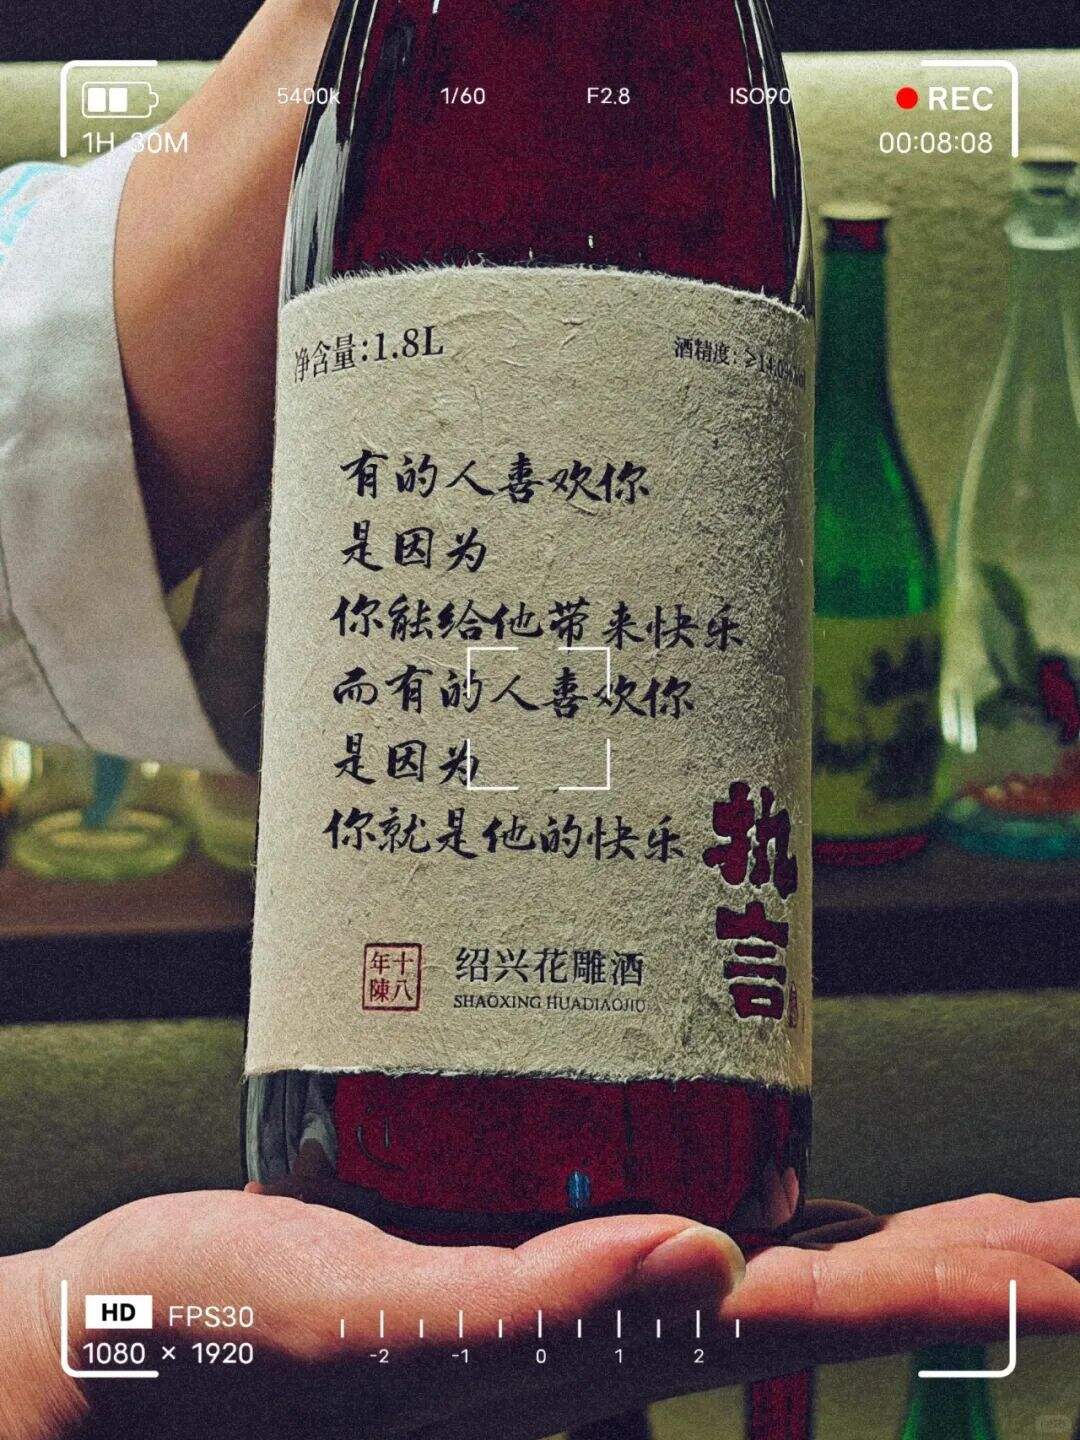 5400k 1/60 F2.8 ISO90 REC
1H 30M 00:08:08
净含量:1.8L
酒精度:>14.0%vol
有的人喜欢你
是因为
你能给他带来快乐
而有的人喜欢你
是因为
你就是他的快乐
执言
十八年陳
绍兴花雕酒
SHAOXING HUADIAOJIU
HD FPS30
1080 × 1920
-2 -1 0 1 2